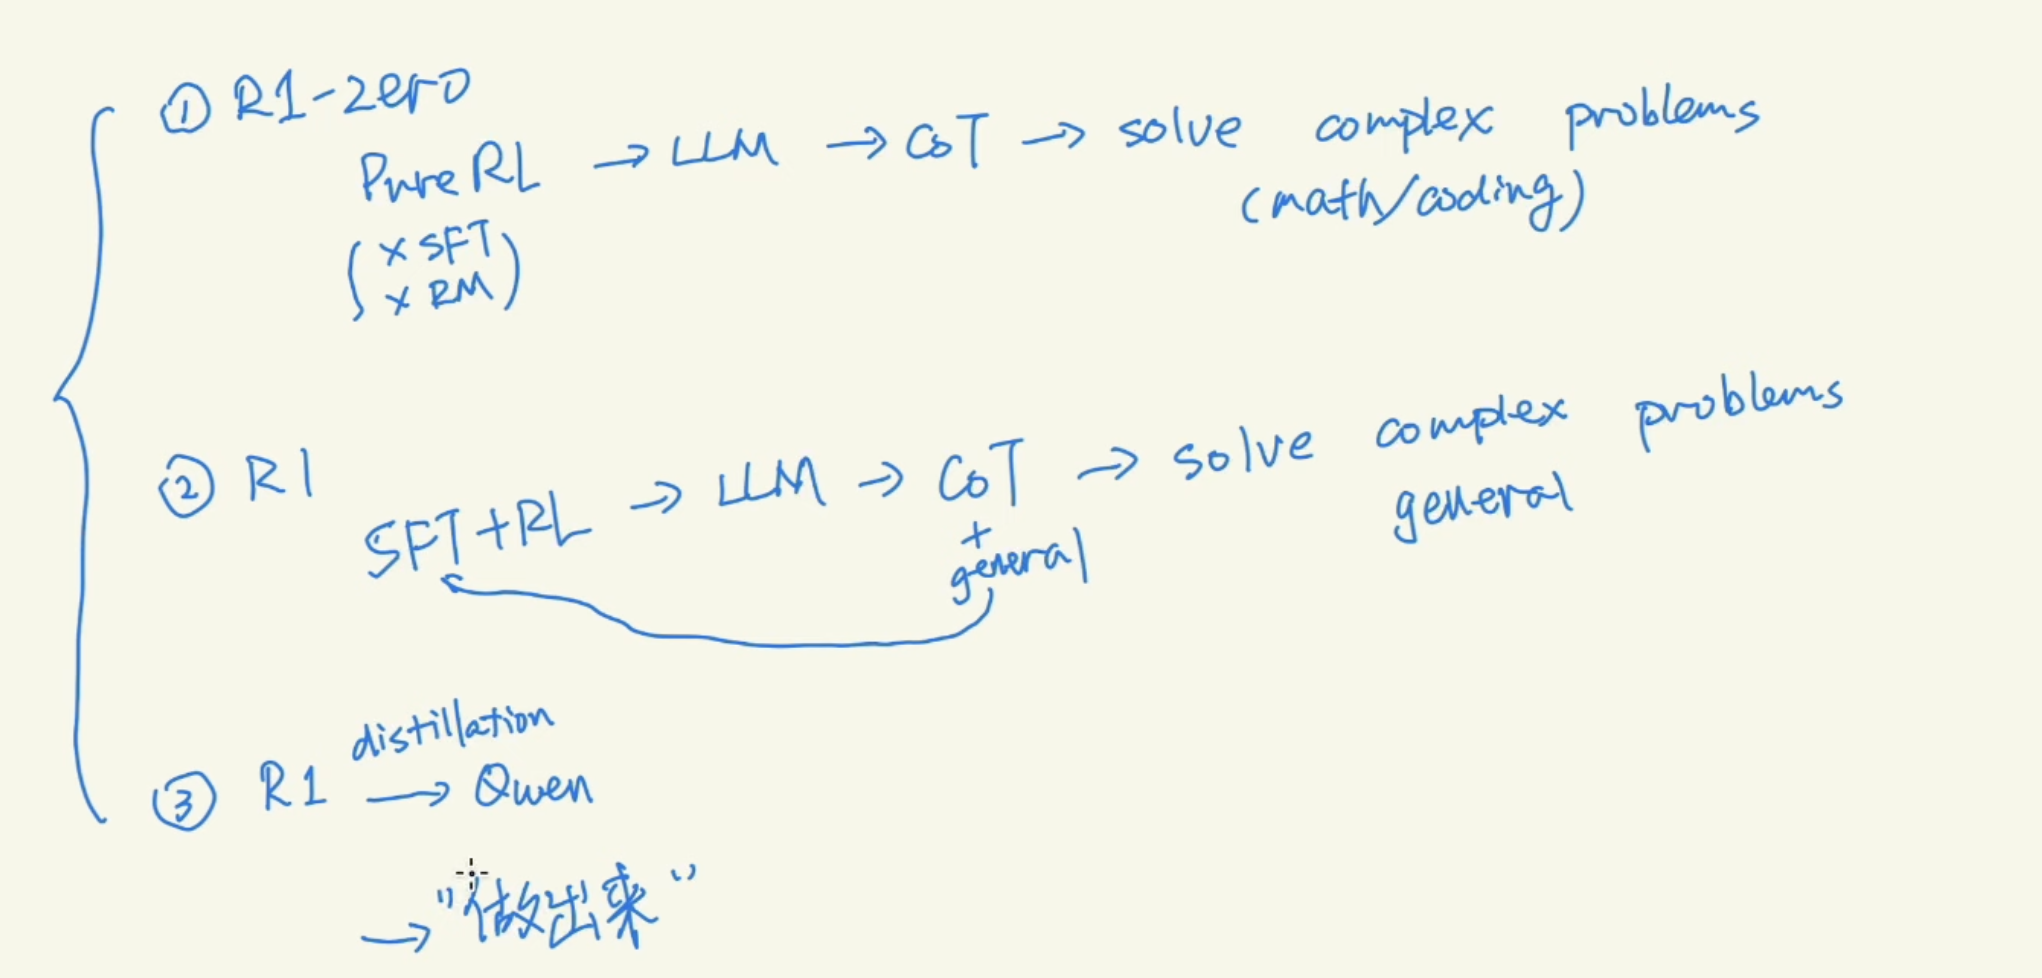 ① R1-zero
Pure RL → LLM → CoT → solve complex problems
(math/coding)
(× SFT
× RM)
② R1
SFT+RL → LLM → CoT → solve complex problems
+ general
general
distillation
③ R1 → Qwen
→ "做出来"